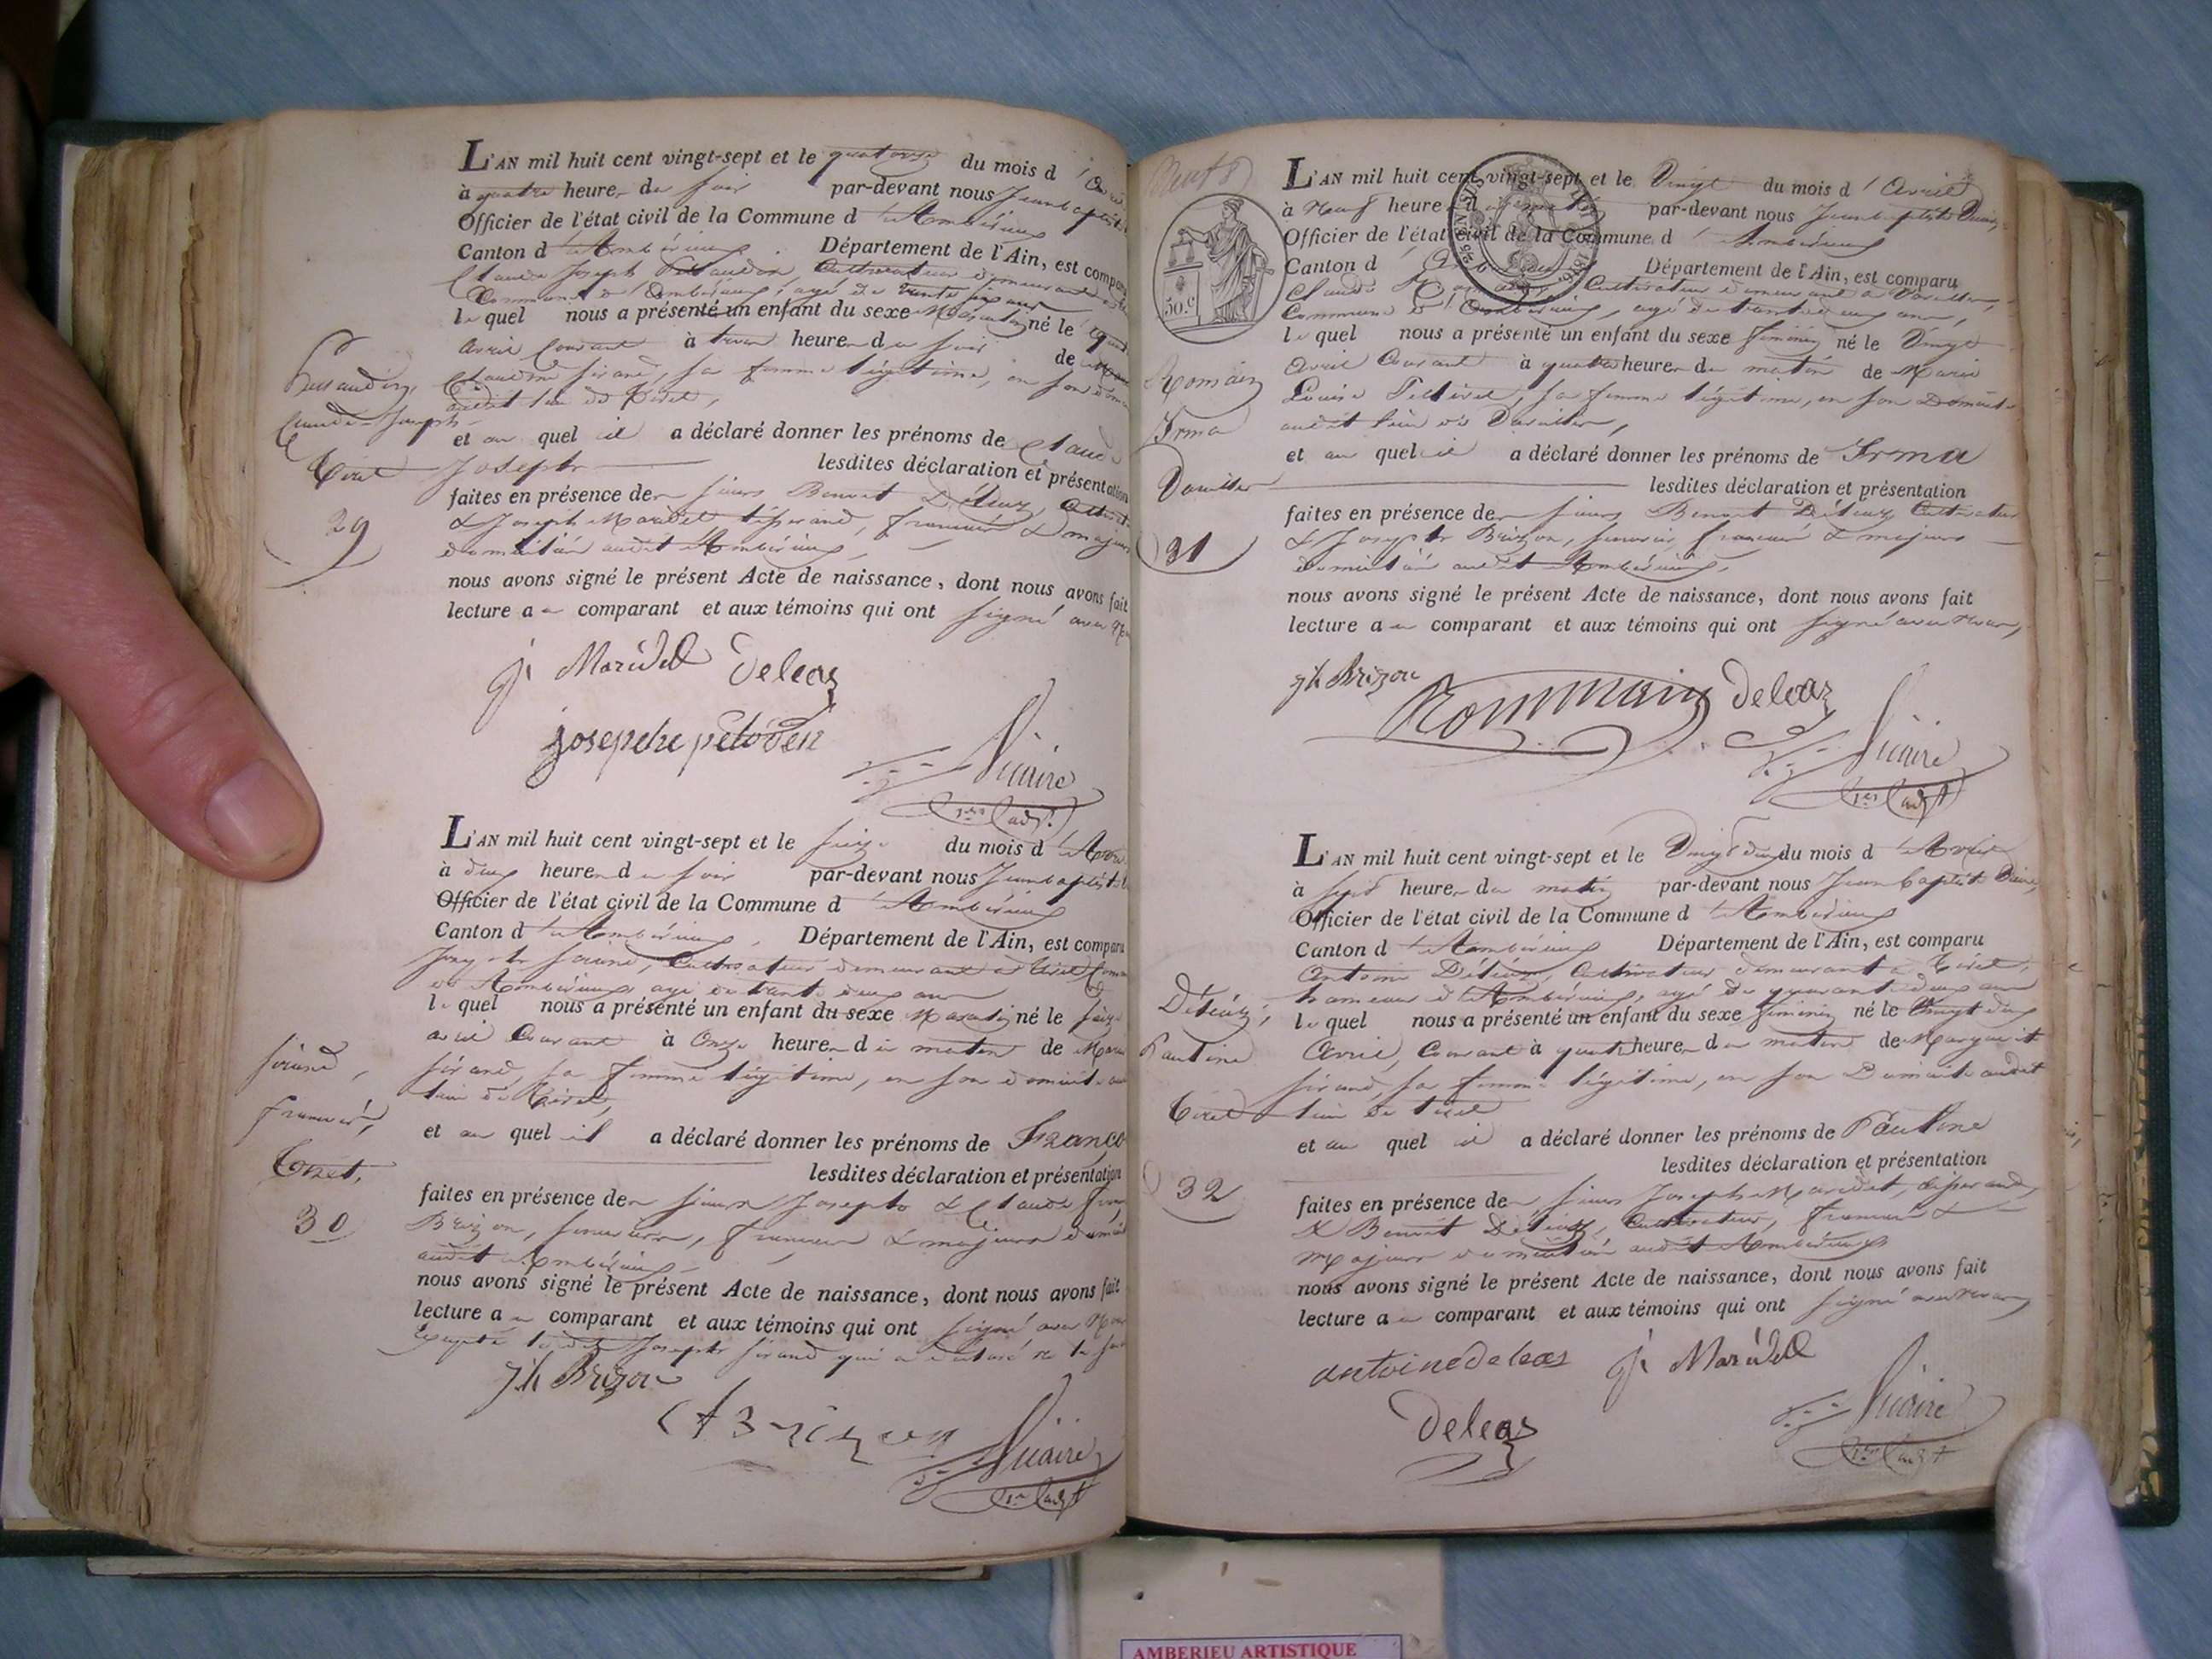 L'AN mil huit cent vingt-sept et le quatorze du mois d'
à quatre heures du soir par-devant nous Jean baptiste
Officier de l'état civil de la Commune d'Ambérieux
Canton d'Ambérieux Département de l'Ain, est comparu
Claude Joseph Cultivateur demeurant
Commune d'Ambérieux, agé de trente
lequel nous a présenté un enfant du sexe Masculin né le
avril Courant à trois heures du soir de
Claudine Sirand, sa femme légitime, en son
audit lieu de Tiret,
Claude Joseph
et au quel il a déclaré donner les prénoms de Claude
Tiret
Joseph lesdites déclaration et présentation
faites en présence des sieurs Benoit Déléaz,
29
& Joseph Maridet tisserand, français & majeurs
domiciliés audit Ambérieux
nous avons signé le présent Acte de naissance, dont nous avons fait
lecture au comparant et aux témoins qui ont signé avec
j Maridel deleaz
Vicaire
L'AN mil huit cent vingt-sept et le seize du mois d'Avril
à deux heures du soir par-devant nous Jean baptiste
Officier de l'état civil de la Commune d'Ambérieux
Canton d'Ambérieux Département de l'Ain, est comparu
Joseph Sirand, Cultivateur demeurant à Tiret
d'Ambérieux agé de trente deux ans
lequel nous a présenté un enfant du sexe Masculin né le seize
avril Courant à onze heures du matin de
Sirand,
Sirand, sa femme légitime, en son domicile
lieu de Tiret,
français,
et au quel il a déclaré donner les prénoms de
Tiret,
lesdites déclaration et présentation
faites en présence des sieurs Joseph & Claude
30
Brizon, français & majeurs
audit Ambérieux
nous avons signé le présent Acte de naissance, dont nous avons fait
lecture au comparant et aux témoins qui ont signé avec
Excepté ledit Joseph Sirand qui a déclaré ne le
jh Brizon
Vicaire
L'AN mil huit cent vingt-sept et le Vingt du mois d'Avril
à Neuf heures du matin par-devant nous Jean baptiste
Officier de l'état civil de la Commune d'Ambérieux
Canton d' Département de l'Ain, est comparu
50.c
Claude Cultivateur demeurant à Vareilles,
Commune d'Ambérieux, agé de trente deux ans,
lequel nous a présenté un enfant du sexe féminin né le Vingt
Romain
avril Courant à quatre heures du matin de Marie
Louise sa femme légitime, en son Domicile
Irma
audit lieu de Vareilles,
et au quel il a déclaré donner les prénoms de Irma
Vareilles
lesdites déclaration et présentation
faites en présence des sieurs Benoit Déléaz Cultivateur
31
& Joseph Brizon, français & majeurs
domiciliés audit Ambérieux,
nous avons signé le présent Acte de naissance, dont nous avons fait
lecture au comparant et aux témoins qui ont signé avec nous,
jh Brizon Rommain deleaz
Vicaire
L'AN mil huit cent vingt-sept et le Vingt deux du mois d'Avril
à sept heures du matin par-devant nous Jean baptiste
Officier de l'état civil de la Commune d'Ambérieux
Canton d'Ambérieux Département de l'Ain, est comparu
Antoine Déléaz, Cultivateur demeurant à Tiret,
hameau d'Ambérieux, agé de quarante deux ans
Déléaz,
lequel nous a présenté un enfant du sexe féminin né le Vingt deux
Pauline
Avril, Courant à quatre heures du matin de Marguerite
Sirand, sa femme légitime, en son Domicile audit
Tiret
lieu de Tiret
et au quel il a déclaré donner les prénoms de Pauline
lesdites déclaration et présentation
32
faites en présence des sieurs Joseph Maridet, tisserand,
& Benoit Déléaz, Cultivateur, français &
Majeurs domiciliés audit Ambérieux
nous avons signé le présent Acte de naissance, dont nous avons fait
lecture au comparant et aux témoins qui ont signé avec nous
antoine deleas j Maridel
deleaz
Vicaire
AMBERIEU ARTISTIQUE